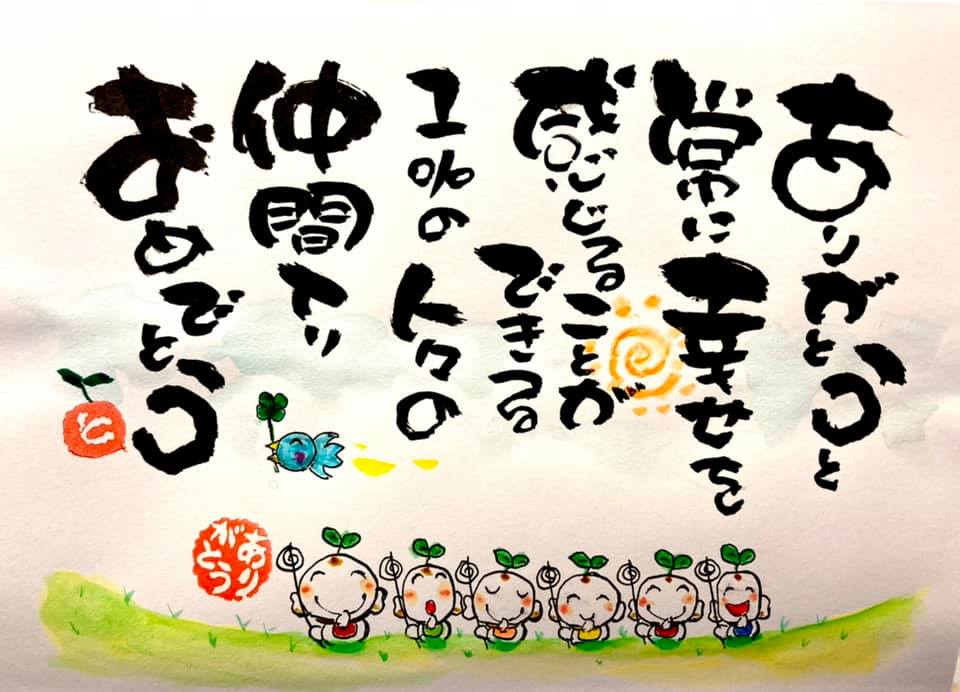 ありがとうと
常に幸せを
感じることが
できる
1%の人々の
仲間入り
おめでとう
ありがとう